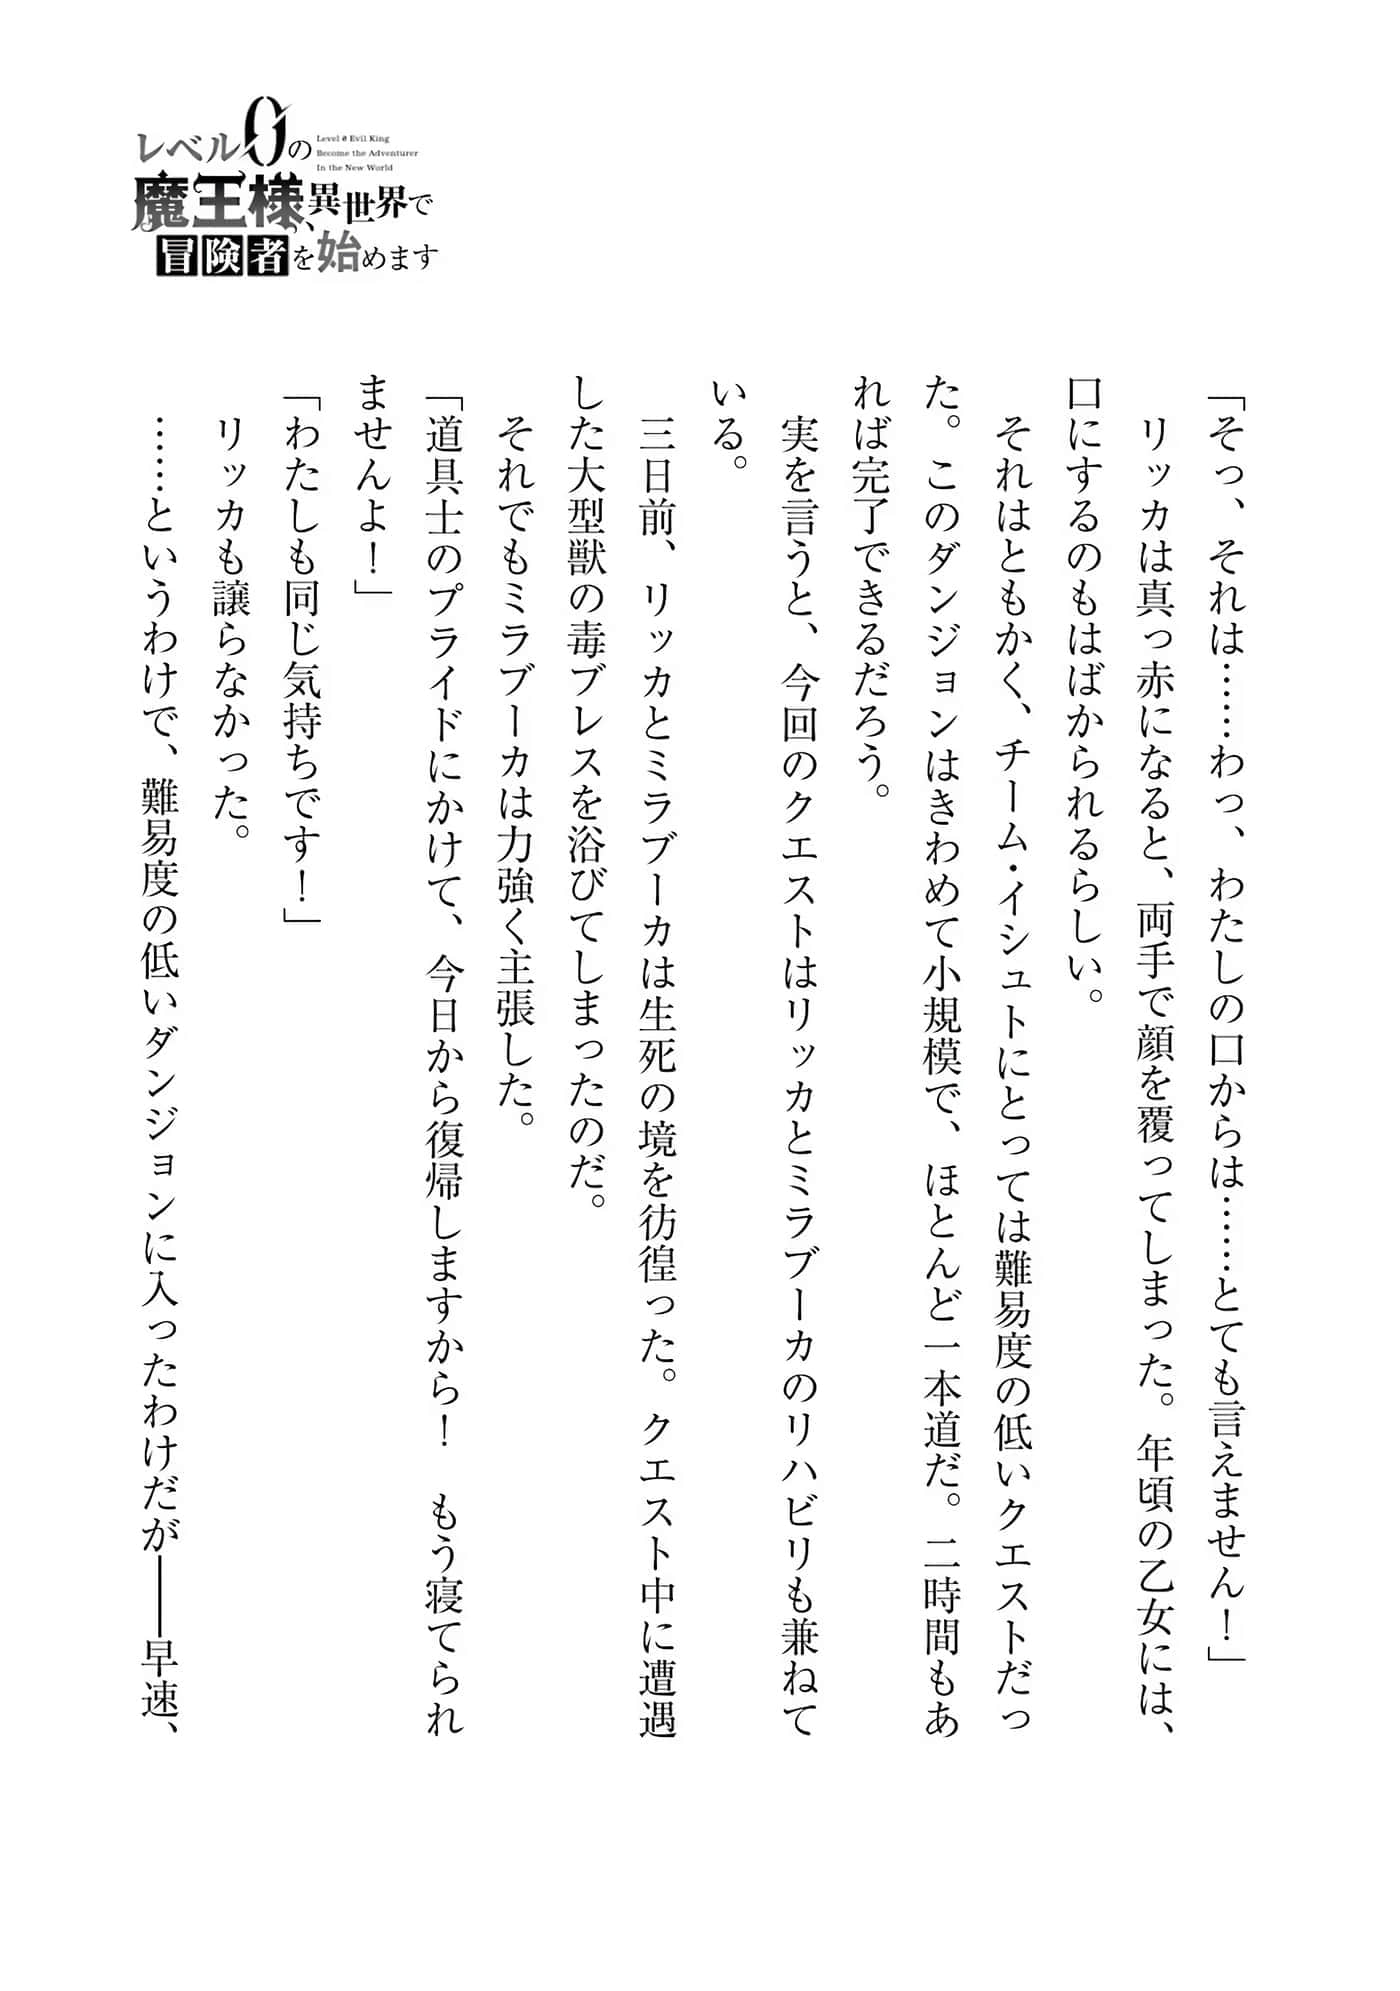 レベル0の
Level 0 Evil King
Become the Adventurer
In the New World
魔王様、異世界で
冒険者を始めます
「そっ、それは……わっ、わたしの口からは……とても言えません！」
リッカは真っ赤になると、両手で顔を覆ってしまった。年頃の乙女には、
口にするのもはばかられるらしい。
それはともかく、チーム・イシュトにとっては難易度の低いクエストだっ
た。このダンジョンはきわめて小規模で、ほとんど一本道だ。二時間もあ
れば完了できるだろう。
実を言うと、今回のクエストはリッカとミラブーカのリハビリも兼ねて
いる。
三日前、リッカとミラブーカは生死の境を彷徨った。クエスト中に遭遇
した大型獣の毒ブレスを浴びてしまったのだ。
それでもミラブーカは力強く主張した。
「道具士のプライドにかけて、今日から復帰しますから！　もう寝てられ
ませんよ！」
「わたしも同じ気持ちです！」
リッカも譲らなかった。
……というわけで、難易度の低いダンジョンに入ったわけだが――早速、